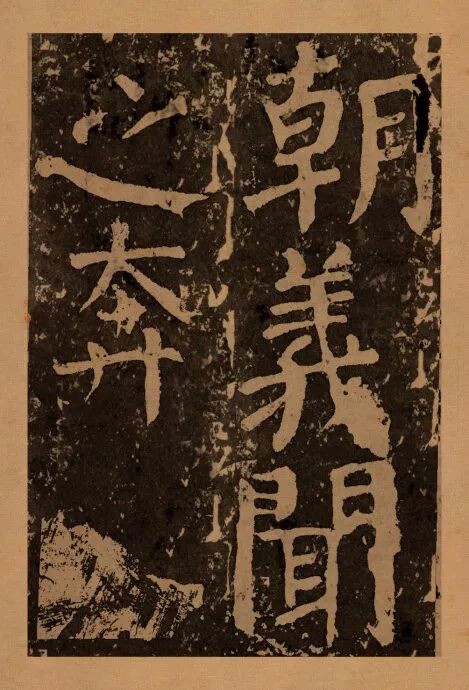 朝義聞
之奔